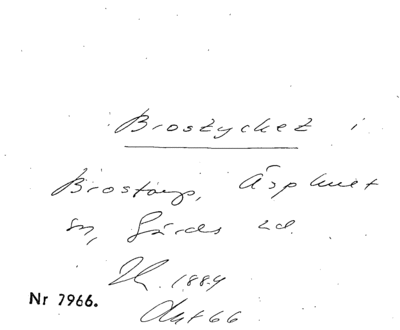 Brostycket i
Brostorp, Äsphult
sn, Gärds hd.
1884
Nr 7966.